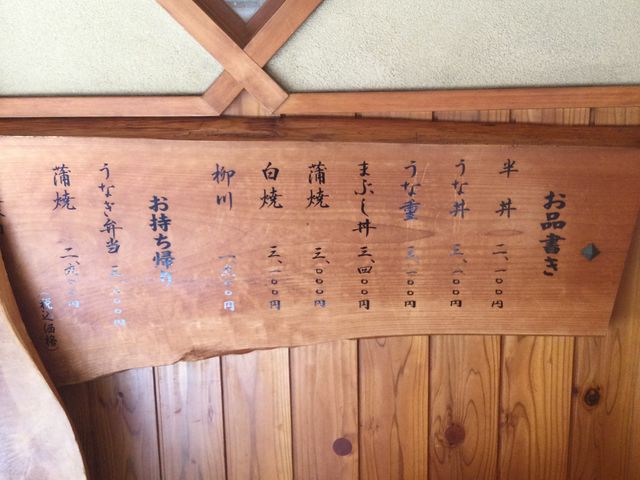 お品書き
半丼 二、一〇〇円
うな丼 三、一〇〇円
うな重 三、一〇〇円
まぶし丼 三、四〇〇円
蒲焼 三、〇〇〇円
白焼 三、〇〇〇円
柳川 一、六〇〇円
お持ち帰り
うなぎ弁当
蒲焼 二、九〇〇円
(税込価格)